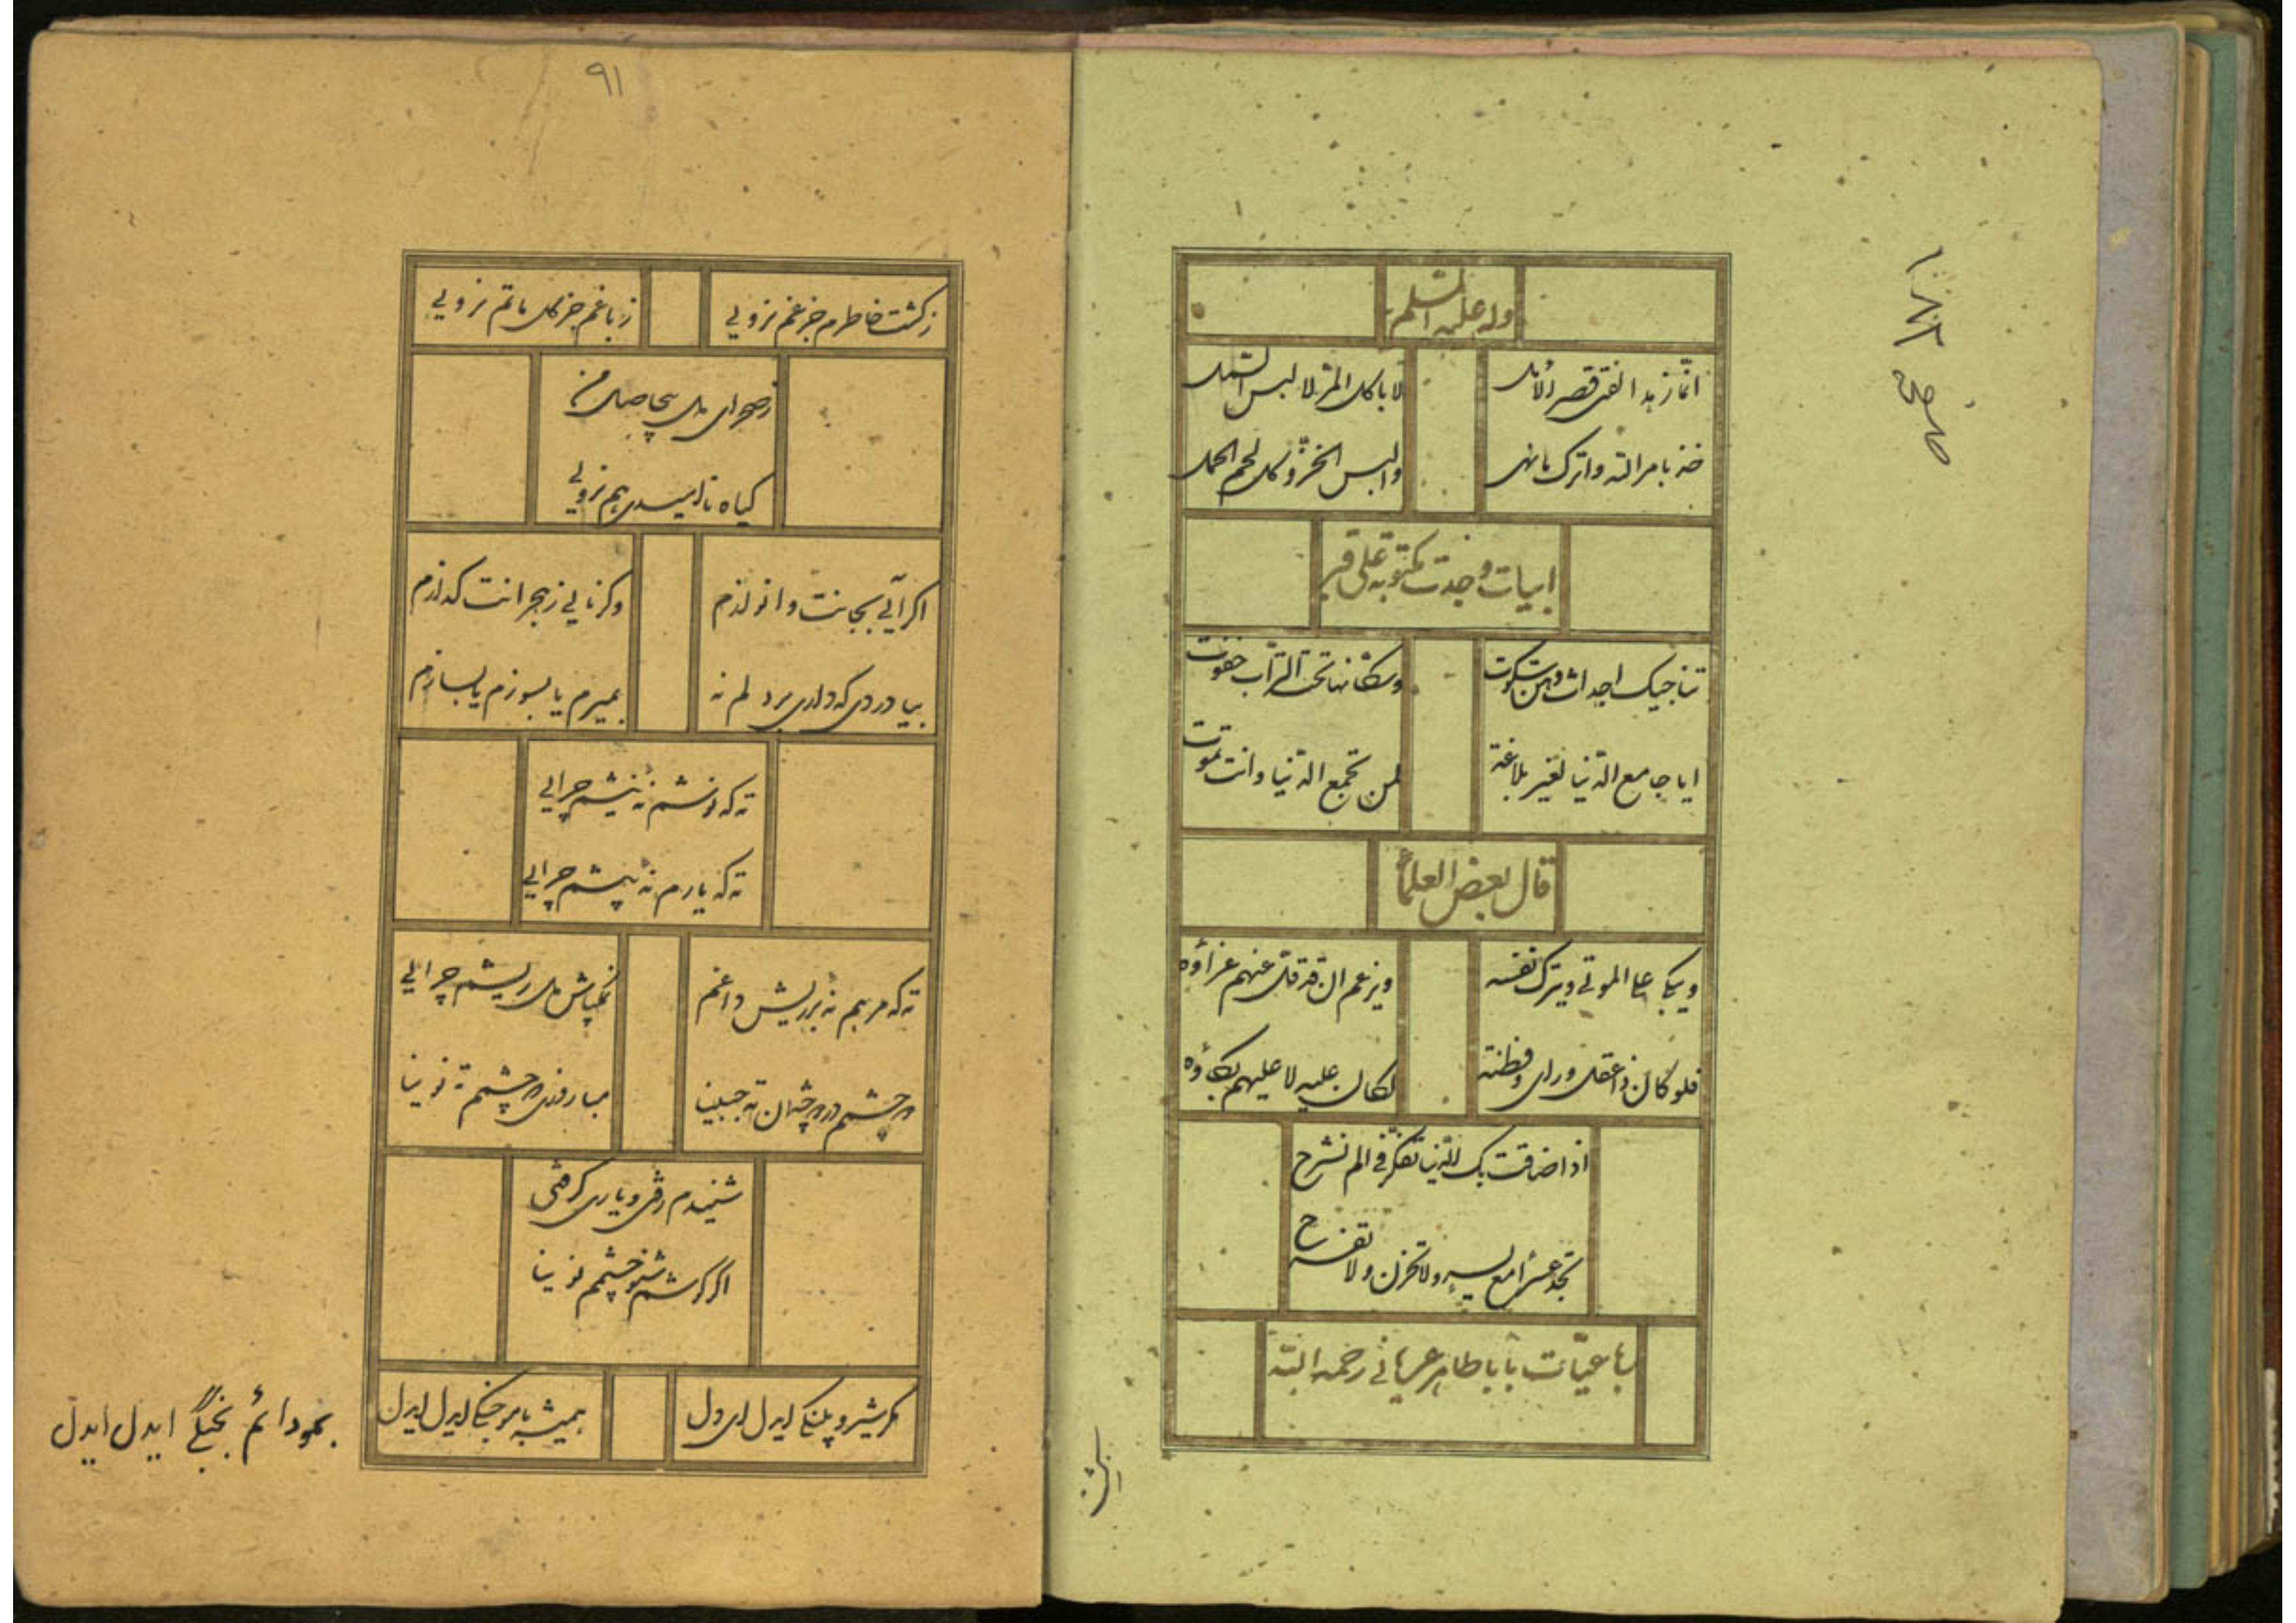 وله علیه السلم
انما زهد الفتی قصر الامل
لا باکل المر لا لبس الشمل
خذ بامر الله واترک ما نهی
والبس الخز وکل لحم الحمل
ابیات وجدت مکتوبة علی قبر
تناجیک اجداث وهن سکوت
وسکانها تحت التراب خفوت
ایا جامع الدنیا لغیر بلاغة
لمن تجمع الدنیا وانت تموت
قال بعض العلمآء
ویبکی علی الموتی ویترک نفسه
ویزعم ان قد قل عنهم عزاؤه
فلو کان ذا عقل ورای وفطنة
لکان علیه لا علیهم بکاؤه
اذا ضاقت بک الدنیا تفکر فی الم نشرح
تجد عسرا مع یسر ولا تحزن ولا تفرح
رباعیات بابا طاهر عریانی رحمه الله
۹۱
ز کشت خاطرم جز غم نرویی
ز باغم جز کل ماتم نرویی
ز صحرای دل بیحاصل من
کیاه ناامیدی هم نرویی
اکر آیی بجانت وانوازم
وکر نایی ز هجرانت کدازم
بیا دردی که داری بر دلم نه
بمیرم یا بسوزم یا بسازم
ته که نوشم نه نیشم چرایی
ته که یارم نه پیشم چرایی
ته که مرهم نه بر ریش داغم
نمکپاش دل ریشم چرایی
شنیدم رفتی و یاری کرفتی
اکر کوشم شنو چشمم نوینا
مکر شیر و پلنکی ایدل ای دل
همیشه بامو جنکی ایدل ایدل
بمو دائم بجنگی ایدل ایدل